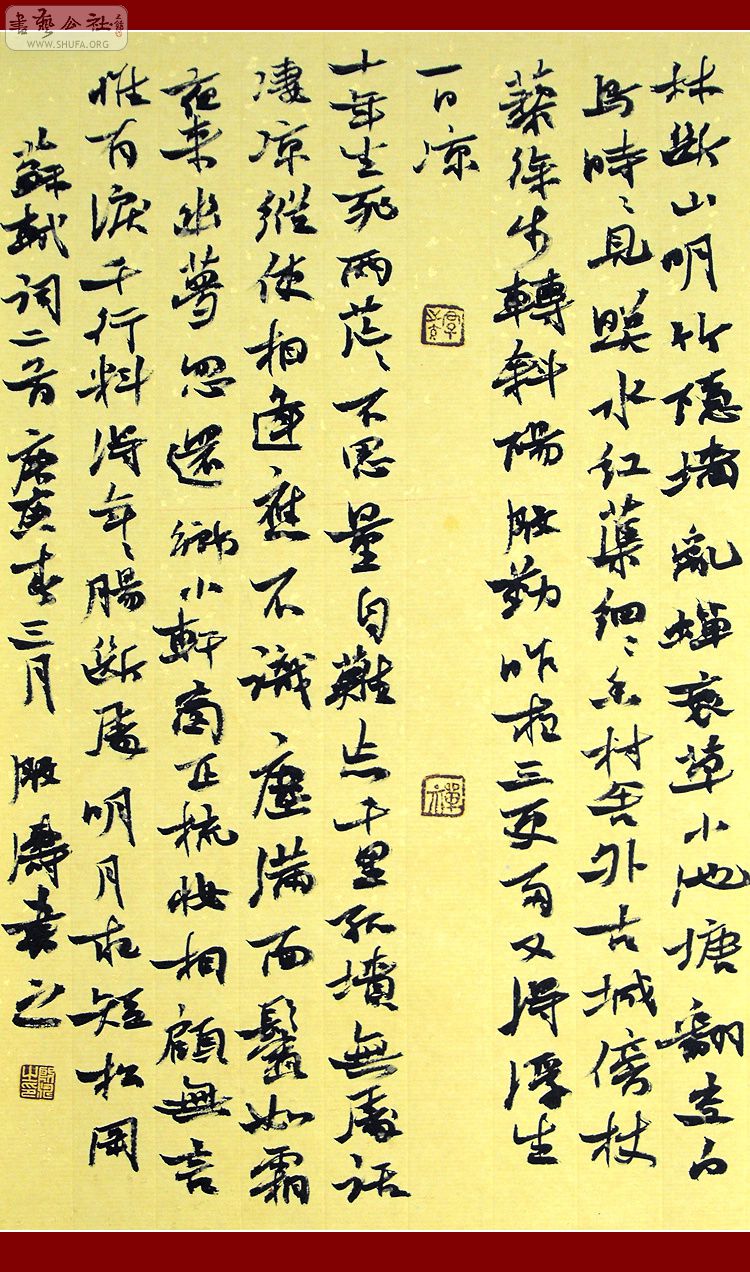 書藝公社
WWW.SHUFA.ORG
林斷山明竹隱墻亂蟬衰草小池塘翻空白
鳥時〻見照水紅蕖細〻香村舍外古城傍杖
藜徐步轉斜陽殷勤昨夜三更雨又得浮生
一日凉
十年生死兩茫〻不思量自難忘千里孤墳無處話
凄凉縱使相逢應不識塵滿面鬢如霜
夜來幽夢忽還鄉小軒窗正梳妝相顧無言
惟有淚千行料得年〻腸斷處明月夜短松岡
蘇軾詞二首庚寅春三月 殷濤書之